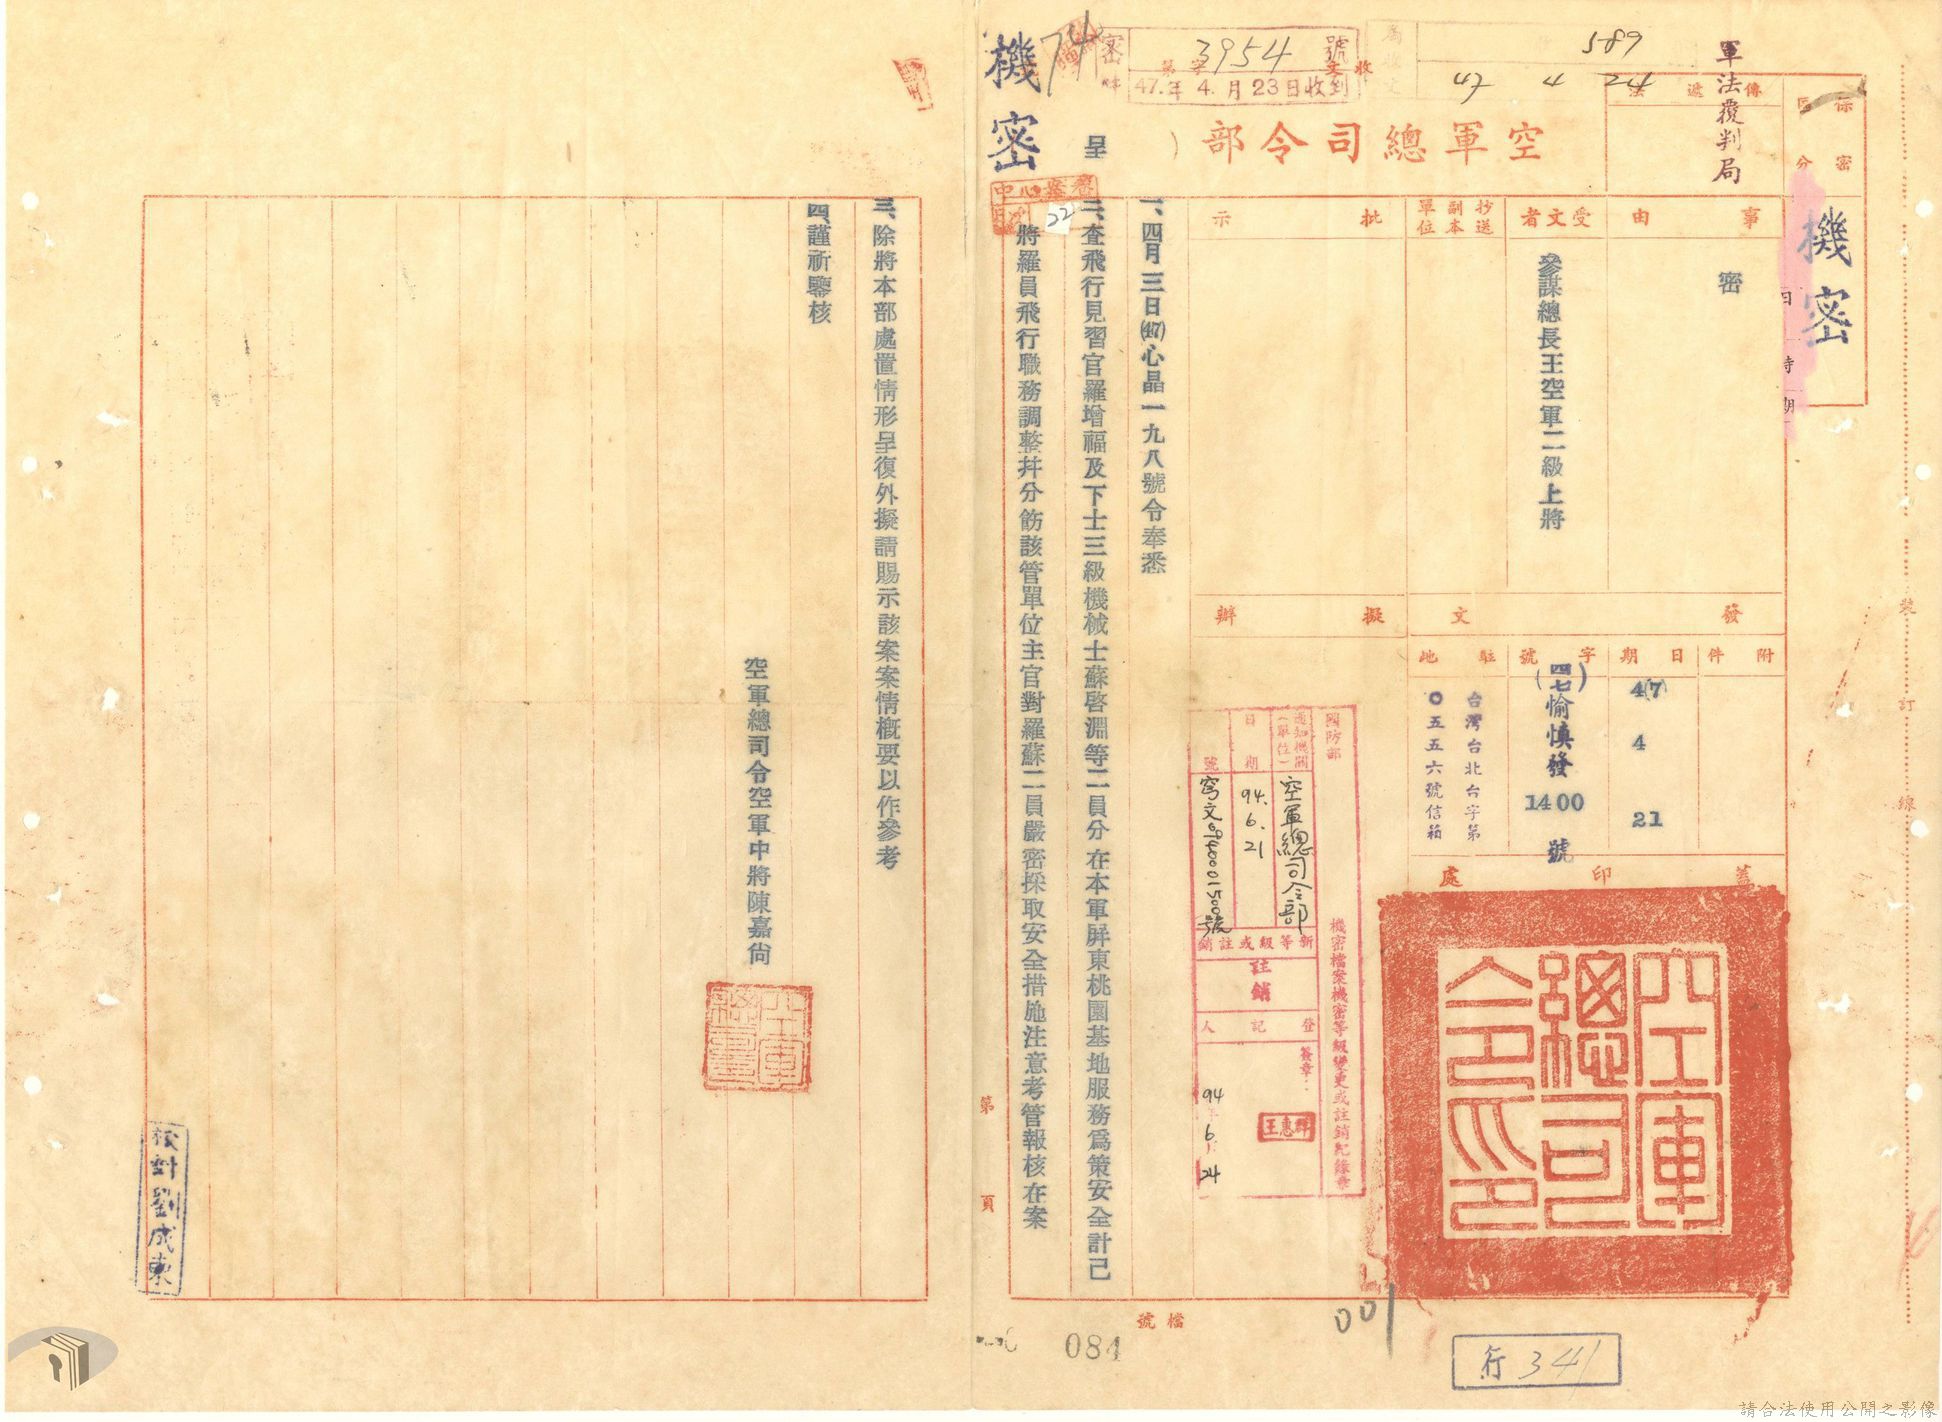 軍法覆判局
589
47 4 24
收文
第字3954號
47.年4.月23日收到
密件
74
機密
空軍總司令部
呈
保密區分
機密
傳遞法
事由
密
受文者
參謀總長王空軍二級上將
抄送副本單位
批示
擬辦
發文
附件
日期
4(7)
4
21
字號
(四七)愉慎發
1400
號
駐地
台灣台北台字第
〇五五六號信箱
蓋印處
空軍總司令印
國防部
機密檔案機密等級變更或註銷紀錄章
通知機關(單位)
空軍總司令部
日期
94.6.21
號
窎文0940001500號
新等級或註銷
註銷
登記人
簽章:
王惠群
94
6
24
檔案中心
22
一、四月三日(47)心晶一九八號令奉悉
二、查飛行見習官羅增福及下士三級機械士蘇啓淵等二員分在本軍屏東桃園基地服務爲策安全計已
將羅員飛行職務調整幷分飭該管單位主官對羅蘇二員嚴密採取安全措施注意考管報核在案
三、除將本部處置情形呈復外擬請賜示該案案情槪要以作參考
四、謹祈鑒核
空軍總司令空軍中將陳嘉尙
校對劉成東
第頁
檔號
084
001
行341
裝訂線
請合法使用公開之影像